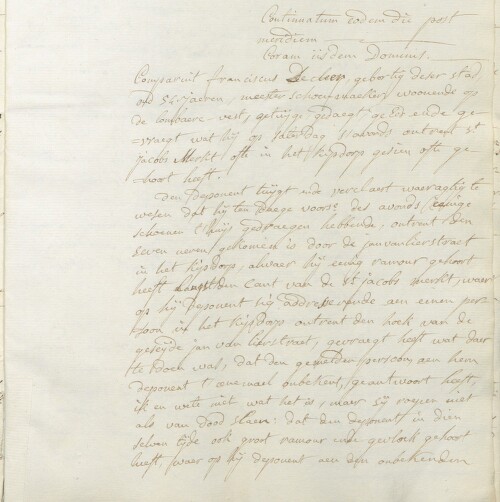 Continuatum Eodem die post
meridiem
Coram iisdem Dominis.
Comparuit franciscus Declerr, gebortig deser stad,
oud 54 jaeren, meester schoenmaeker, woonende op
de lombaere-vest, getuyge gedaegt ge Eed ende ge-
vraegt wat hij op saterdag s'avonds ontrent st
jacobs Merkt, ofte in het kipdorp gesien ofte ge-
hoort heeft.
Den deponent tuygt ende verclaert waeragtig te
wesen dat hij ten daege voors: des avonds eenige
schoenen t'huijs gedraegen hebbende, ontrent den
seven ueren gekomen is door de janvanlierstraet
in het kipdorp, alwaer hij eenig ramour gehoort
heeft langst den cant van de St jacobs merkt, waer
op hij deponent sig addresserende aen eenen per-
soon in het kipdorp ontrent den hoek van de
geseyde jan van lierstraet, gevraegt heeft wat daer
te doen was, dat den gemelden persoon, aen hem
deponent t'eenemael onbekent, geantwoort heeft,
ik en wete niet wat het is, maer sij roepen niet
als van dood slaen: dat den deponent in dien
selven tyde ook groot ramour ende geklock gehoort
heeft, waer op hij deponent aen den onbekenden